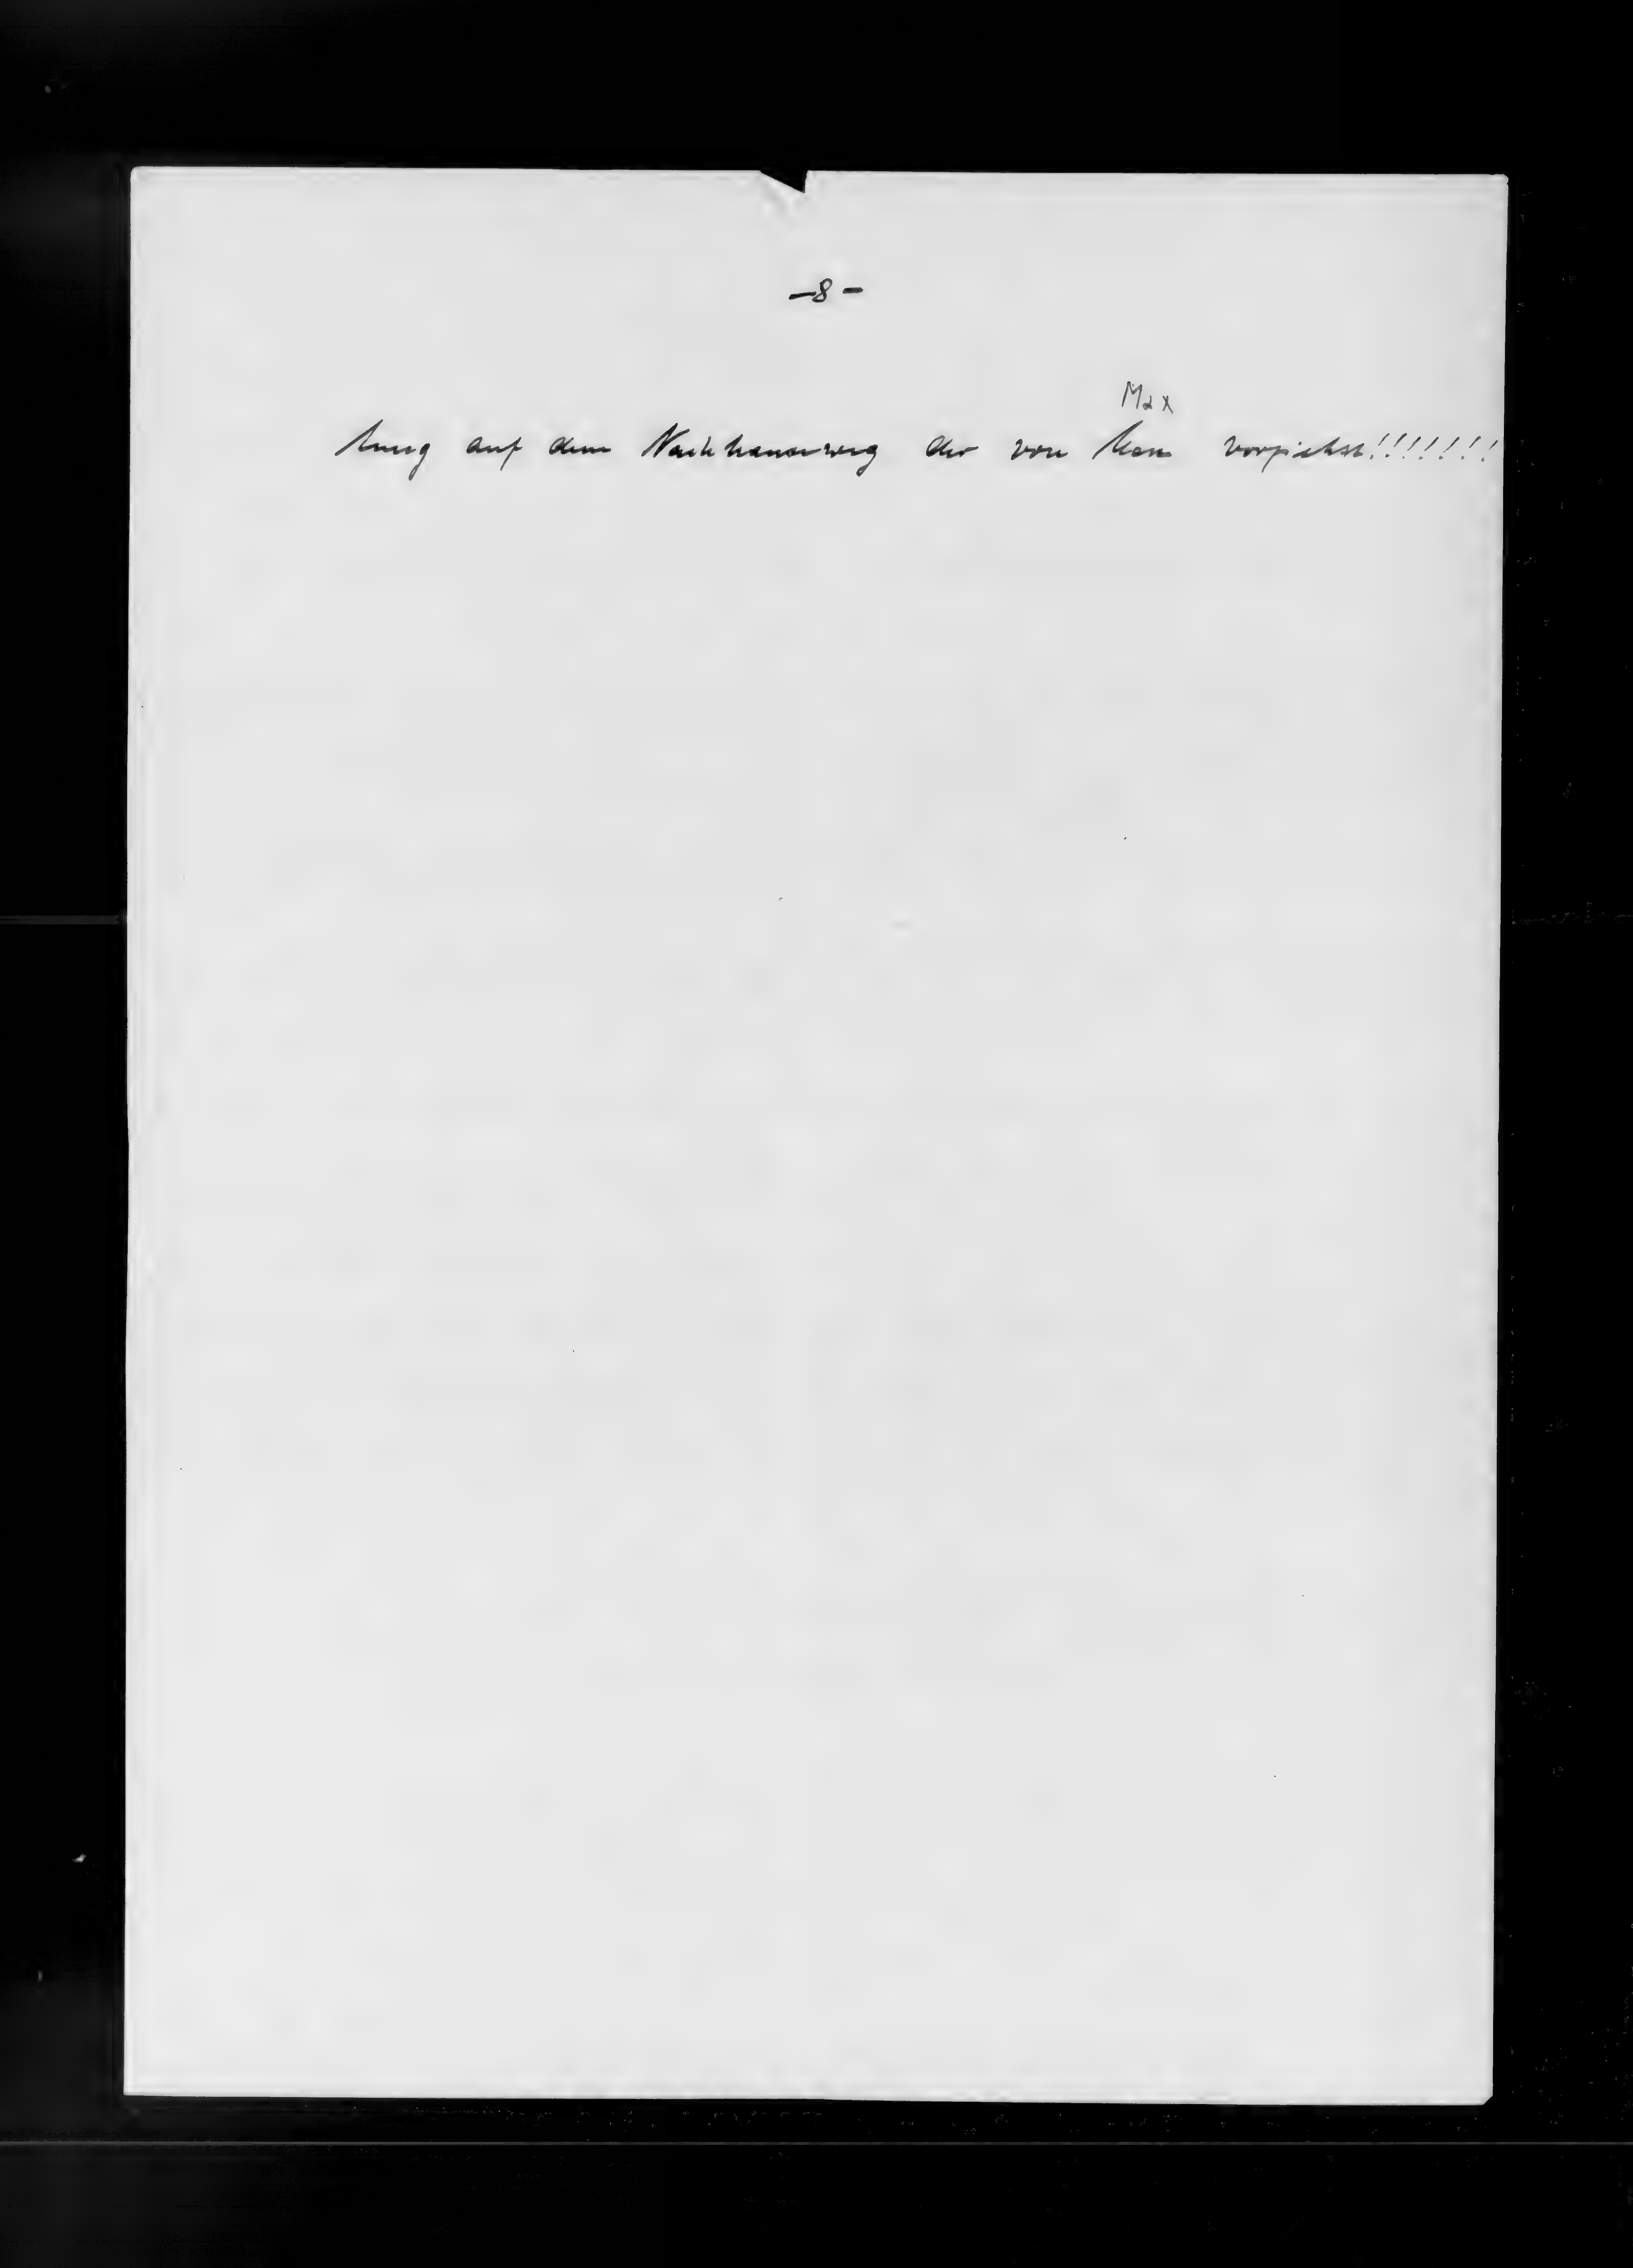 -8-
Max
tung auf dem Nachhauseweg der von Max vorziehst!!!!!!!